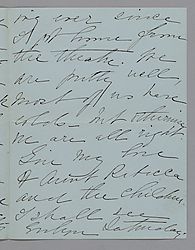 ing ever since
I got home from
the theatre. We
are pretty well
most of us have
colds but otherwise
we are all right.
Give my love
to Aunt Rebecca
and the children.
I shall see
Saturday